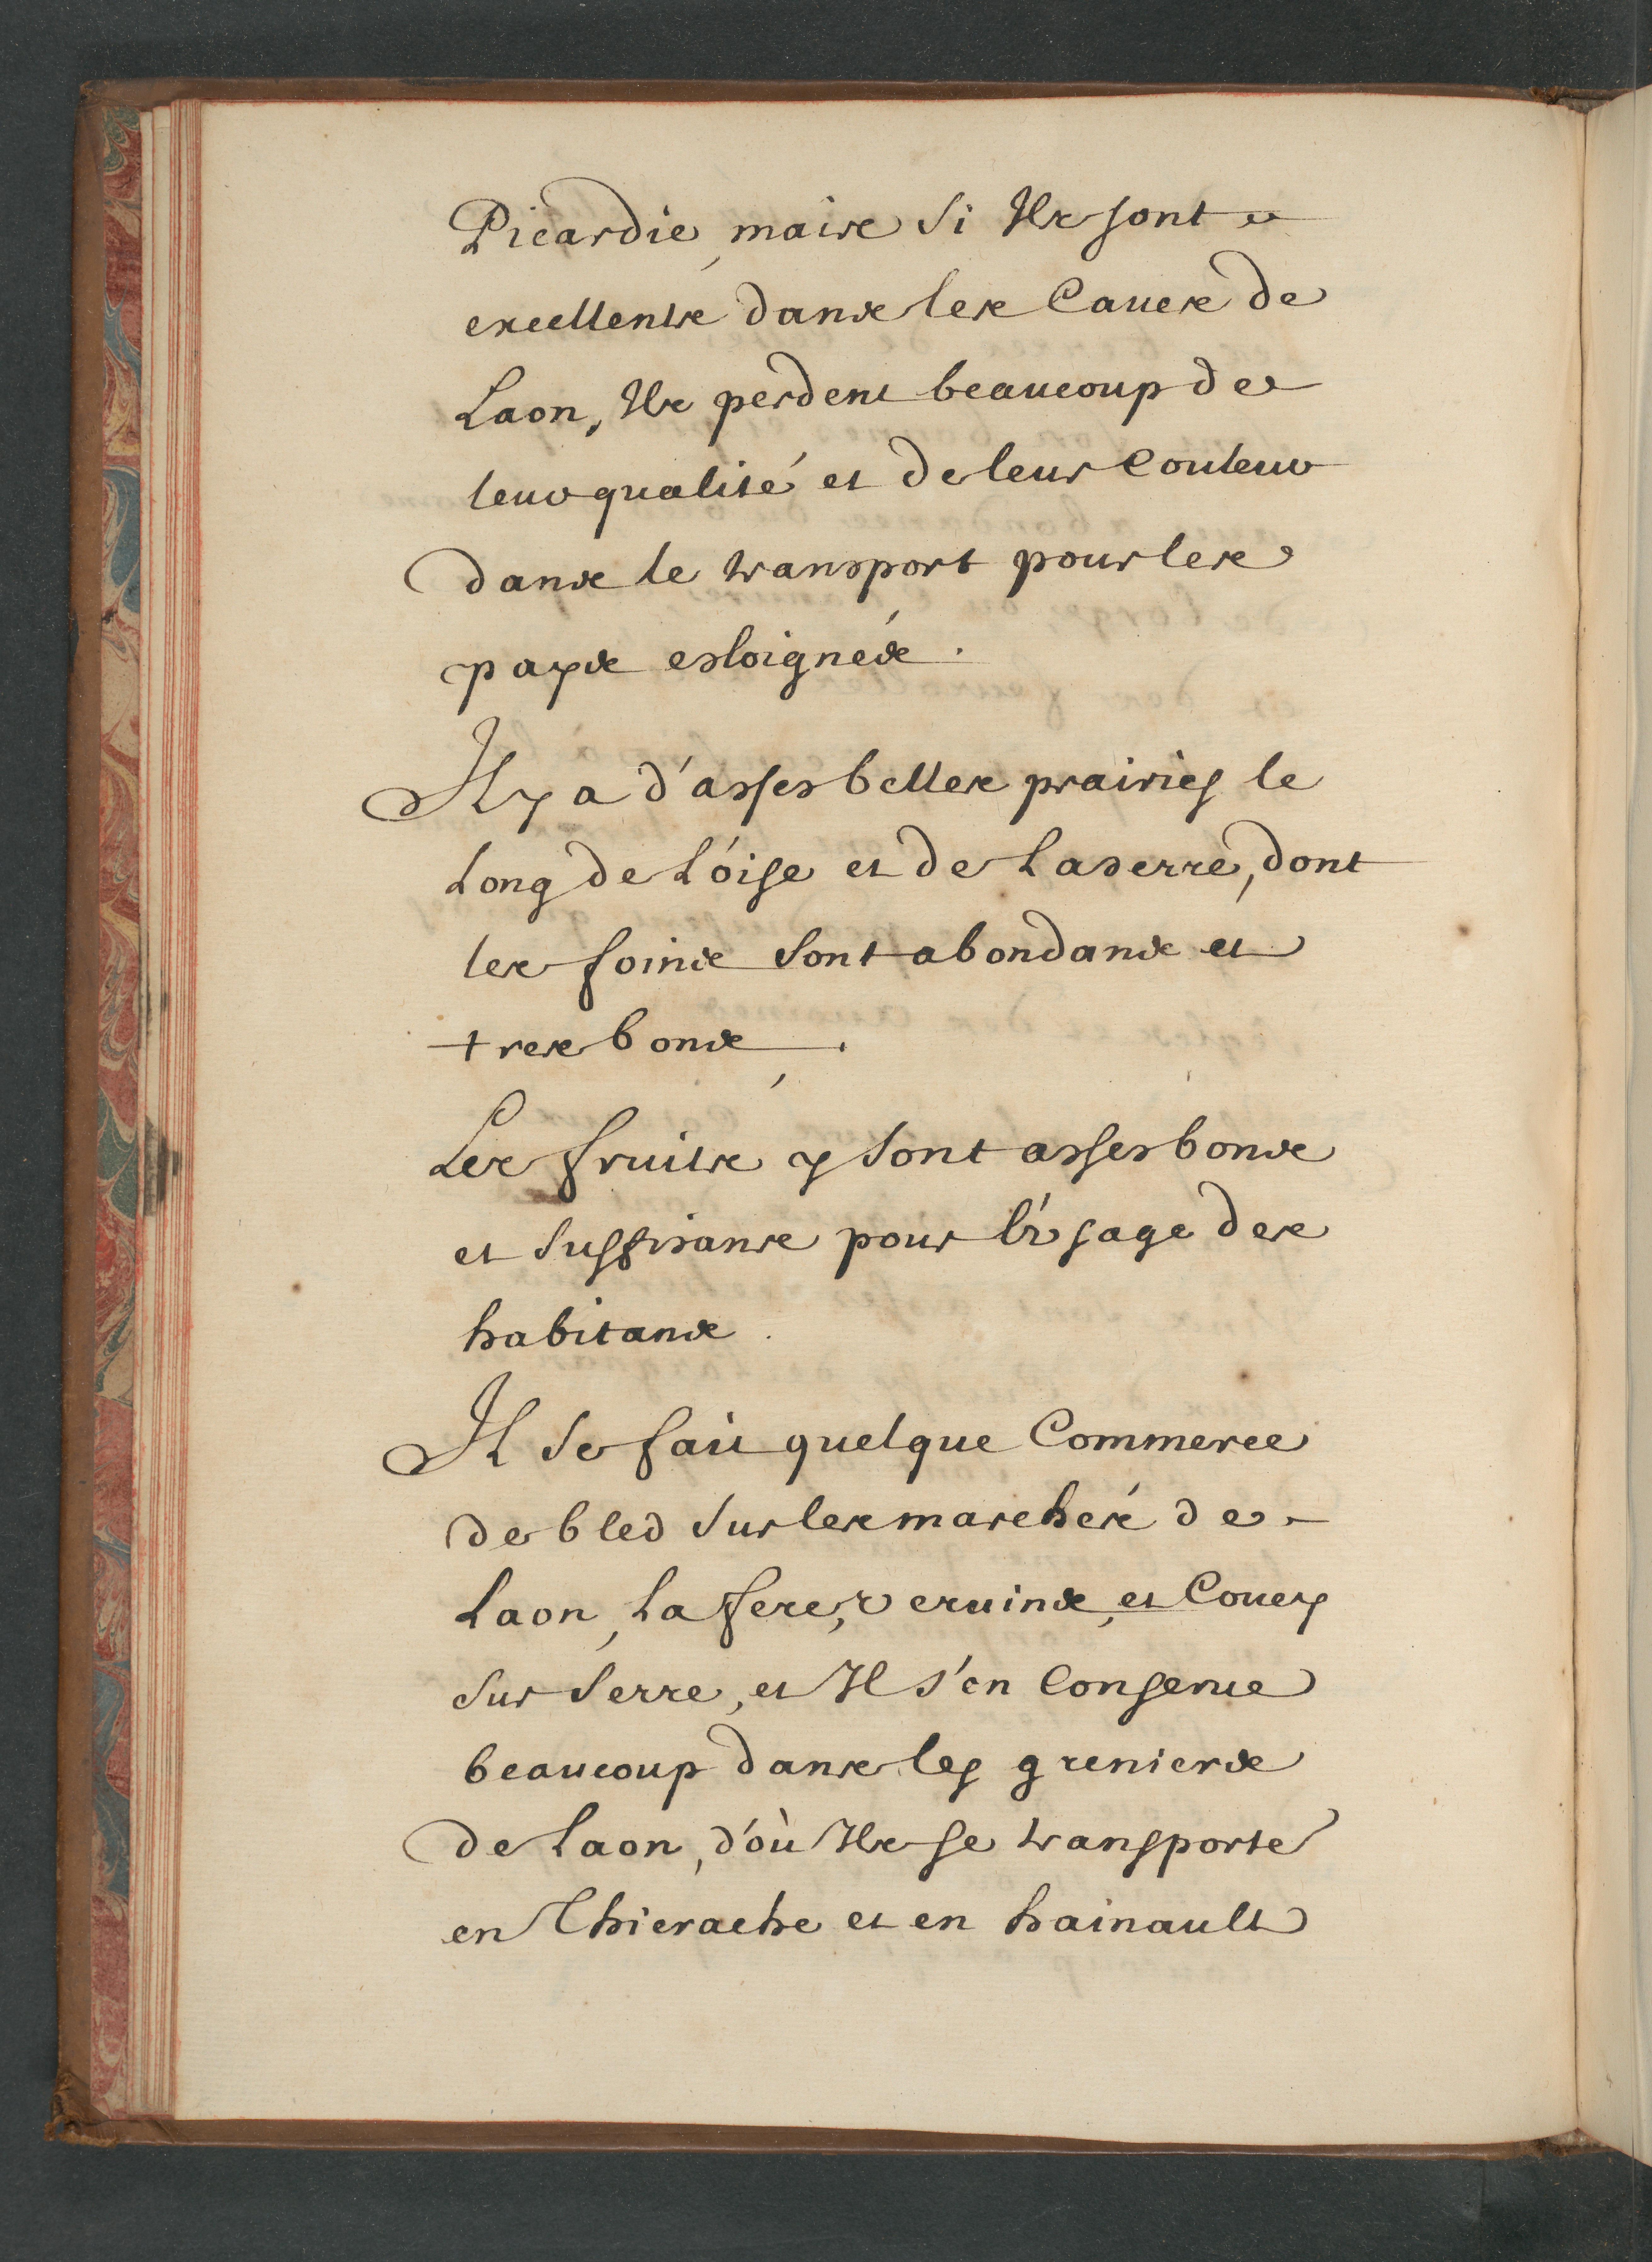 Picardie, mais si Ils sont
excellents dans les Caues de
Laon, Ils perdent beaucoup de
leur qualité et de leur Couleur
dans le transport pour les
pays esloignés.
Il y a d'asses belles prairies le
Long de L'oise et de La serre, dont
les foins sont abondans et
tres bons.
Les fruits y sont asses bons
et suffisans pour l'vsage des
habitans.
Il se fait quelque Commerce
de bled sur les marchés de
Laon, La fere, veruins, et Coucy
sur serre, et Il s'en Conserue
beaucoup dans les greniers
de Laon, d'où Ils se transporte
en Thierache et en hainault